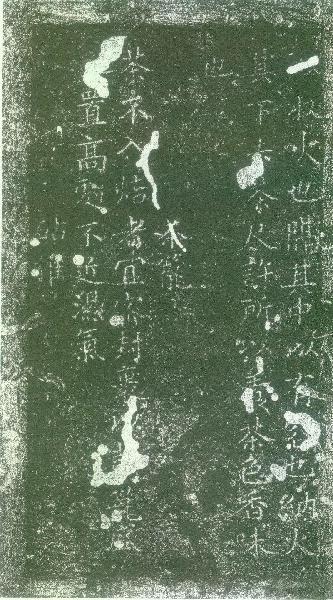 收火也隔其中以有容也納火
其下去茶尺許所以養茶色香味
也
茶籠
茶不入焙者宜密封裹
置高處不近濕氣
砧椎